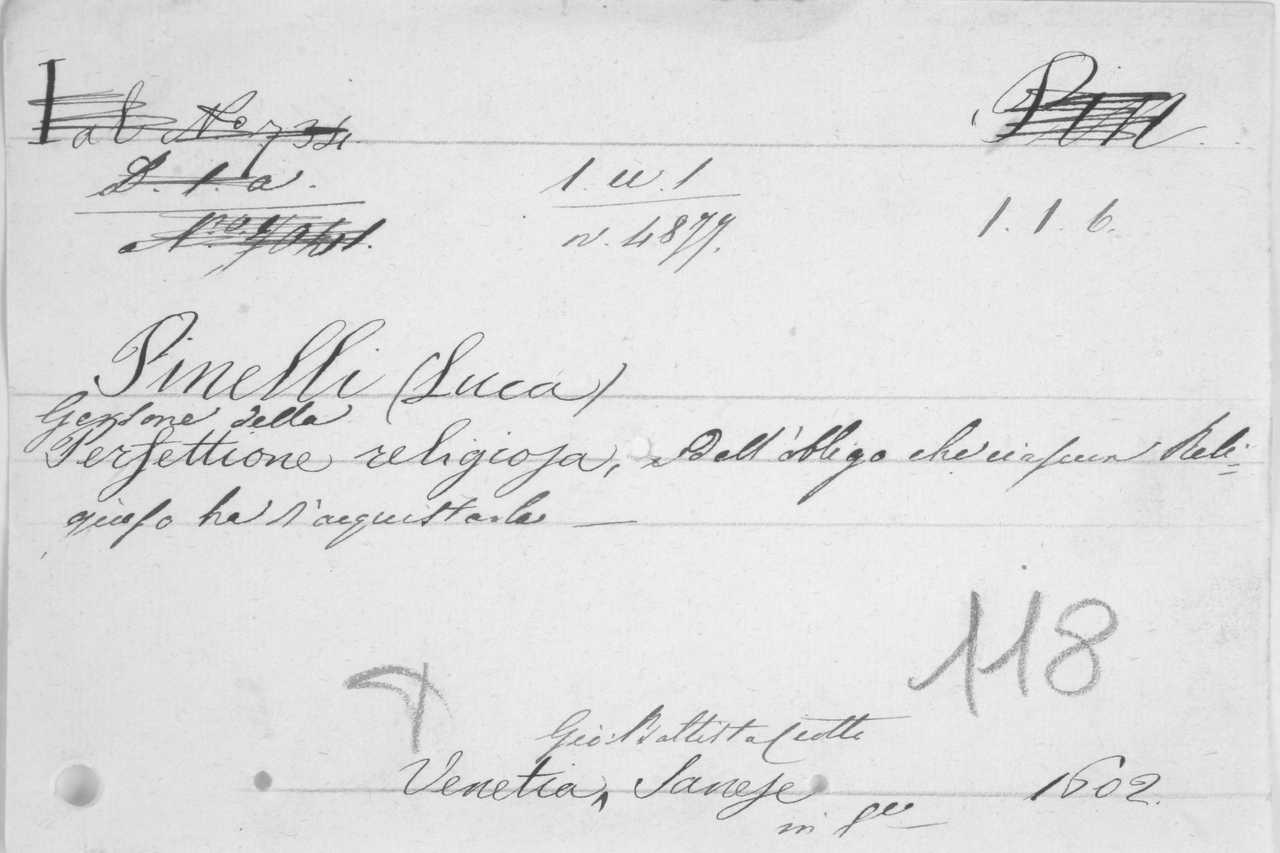 N.o 734.
D. 1. a.
1. a. 1
n. 4877.
1. 1. 6.
Pinelli (Luca)
Gersone della
Perfettione religiosa, Dell'obligo che ciascun Reli=
gioso ha d'acquistarla —
118
Gio: Battista Ciotti
Venetia, Sanese 1602.
in